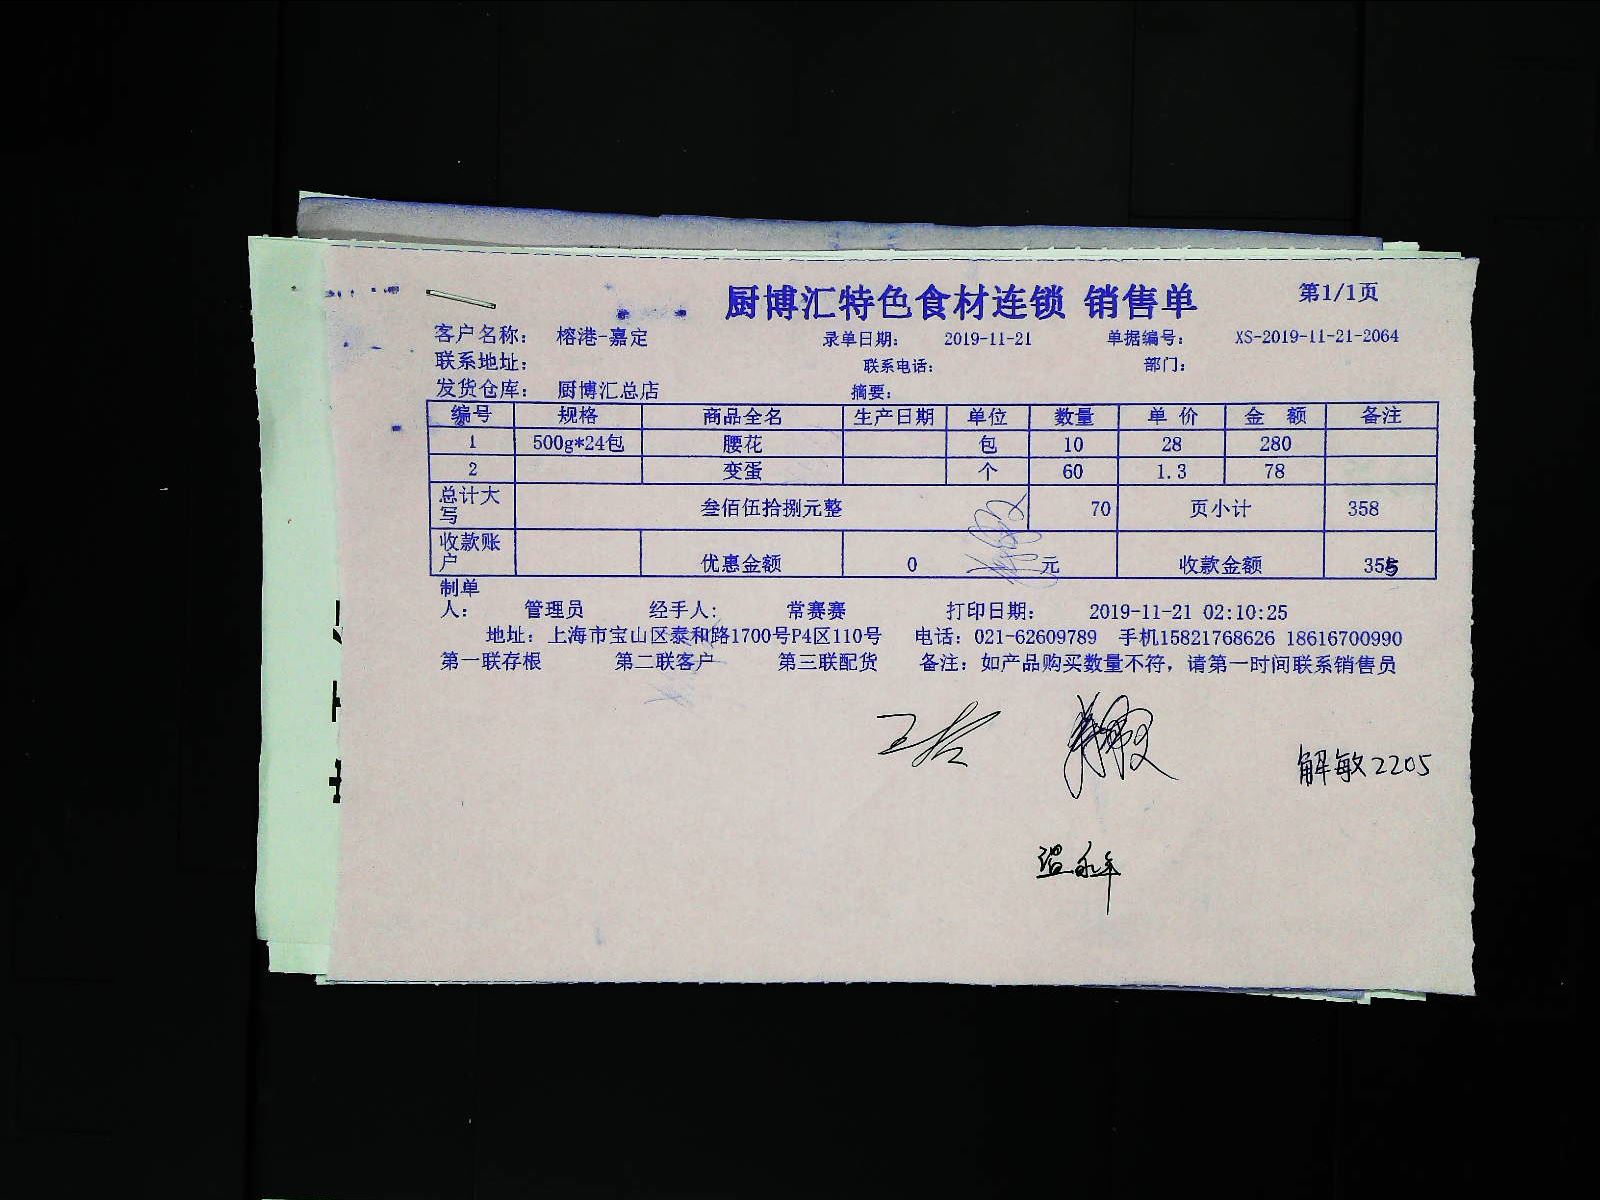 厨博汇特色食材连锁 销售单 第1/1页
客户名称： 榕港-嘉定 录单日期： 2019-11-21 单据编号： XS-2019-11-21-2064
联系地址： 联系电话： 部门：
发货仓库： 厨博汇总店 摘要：
编号 规格 商品全名 生产日期 单位 数量 单价 金额 备注
1 500g*24包 腰花 包 10 28 280
2 变蛋 个 60 1.3 78
总计大写 叁佰伍拾捌元整 70 页小计 358
收款账户 优惠金额 0 元 收款金额
制单人： 管理员 经手人： 常赛赛 打印日期： 2019-11-21 02:10:25
地址：上海市宝山区泰和路1700号P4区110号 电话：021-62609789 手机15821768626 18616700990
第一联存根 第二联客户 第三联配货 备注：如产品购买数量不符，请第一时间联系销售员
解敏2205